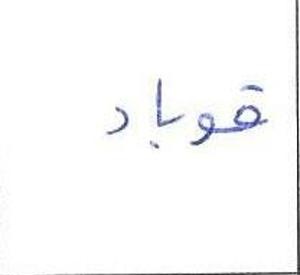 قوباد